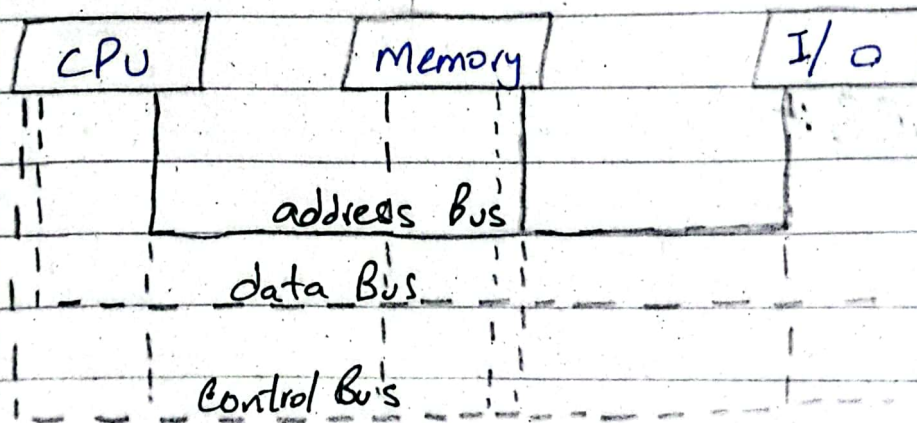 CPU Memory I/O
address Bus
data Bus
Control Bus